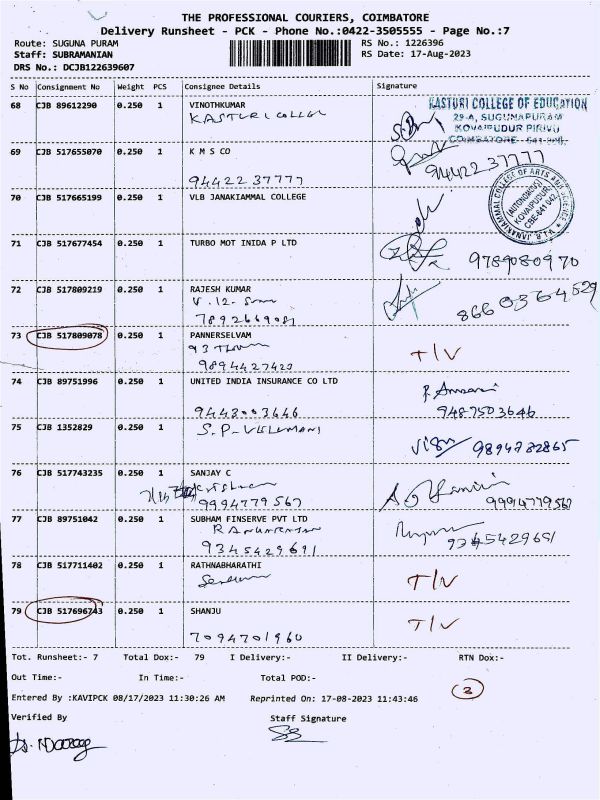 THE PROFESSIONAL COURIERS, COIMBATORE
Delivery Runsheet - PCK - Phone No.:0422-3505555 - Page No.:7
Route: SUGUNA PURAM RS No.: 1226396
Staff: SUBRAMANIAN RS Date: 17-Aug-2023
DRS No.: DCJB122639607
S No Consignment No Weight PCS Consignee Details Signature
68 CJB 89612290 0.250 1 VINOTHKUMAR
KASTURI COLLEGE
KASTURI COLLEGE OF EDUCATION
29-A, SUGUNAPURAM
KOVAIPUDUR PIRIVU
69 CJB 517655070 0.250 1 K M S CO
94422 37777 94422 37777
70 CJB 517665199 0.250 1 VLB JANAKIAMMAL COLLEGE
V.L.B. JANAKIAMMAL COLLEGE OF ARTS AND SCIENCE
(AUTONOMOUS)
KOVAIPUDUR
CBE-641 042
71 CJB 517677454 0.250 1 TURBO MOT INIDA P LTD
9789080970
72 CJB 517809219 0.250 1 RAJESH KUMAR
8660364529
7892669081
73 CJB 517809078 0.250 1 PANNERSELVAM
T/V
9894427429
74 CJB 89751996 0.250 1 UNITED INDIA INSURANCE CO LTD
9443003646 9487503646
75 CJB 1352829 0.250 1 S.P-VELUMANI
9894782865
76 CJB 517743235 0.250 1 SANJAY C
9994779567 9994779567
77 CJB 89751042 0.250 1 SUBHAM FINSERVE PVT LTD
9345429691 9345429691
78 CJB 517711402 0.250 1 RATHNABHARATHI
T/V
79 CJB 517696743 0.250 1 SHANJU
T/V
7094701960
Tot. Runsheet:- 7 Total Dox:- 79 I Delivery:- II Delivery:- RTN Dox:-
Out Time:- In Time:- Total POD:-
3
Entered By :KAVIPCK 08/17/2023 11:30:26 AM Reprinted On: 17-08-2023 11:43:46
Verified By Staff Signature